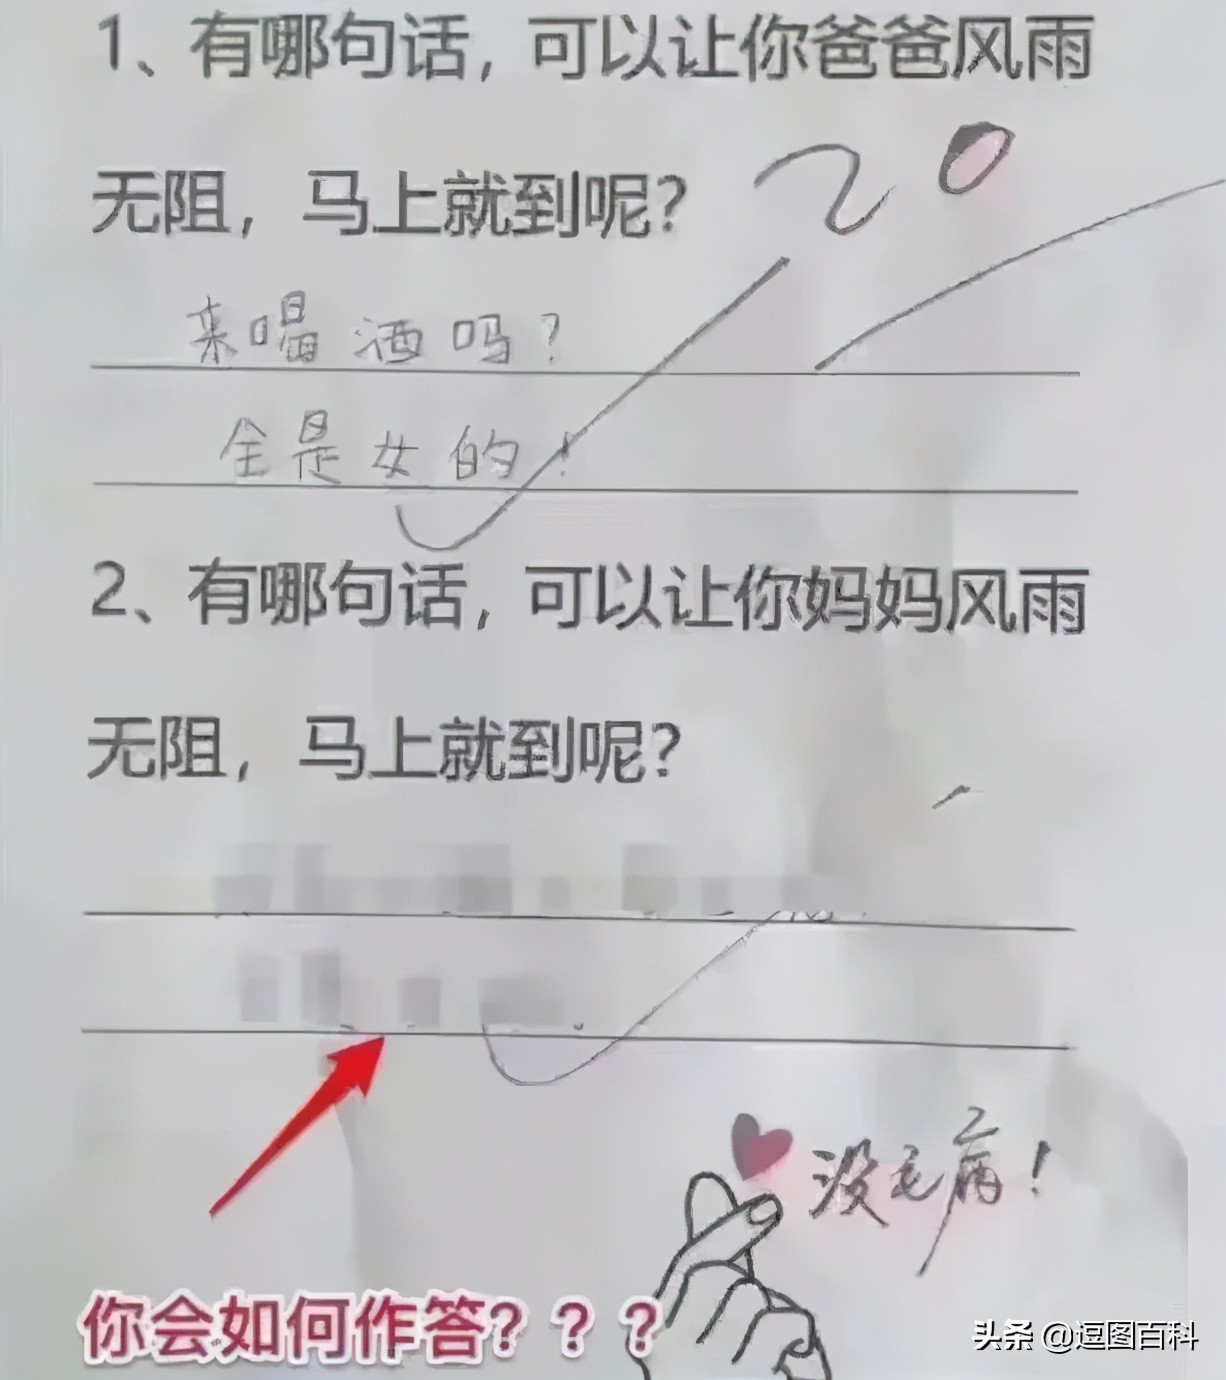 1、有哪句话，可以让你爸爸风雨
无阻，马上就到呢？
20
来喝洒吗？
全是女的！
2、有哪句话，可以让你妈妈风雨
无阻，马上就到呢？
没毛病！
你会如何作答？？？
头条 @逗图百科